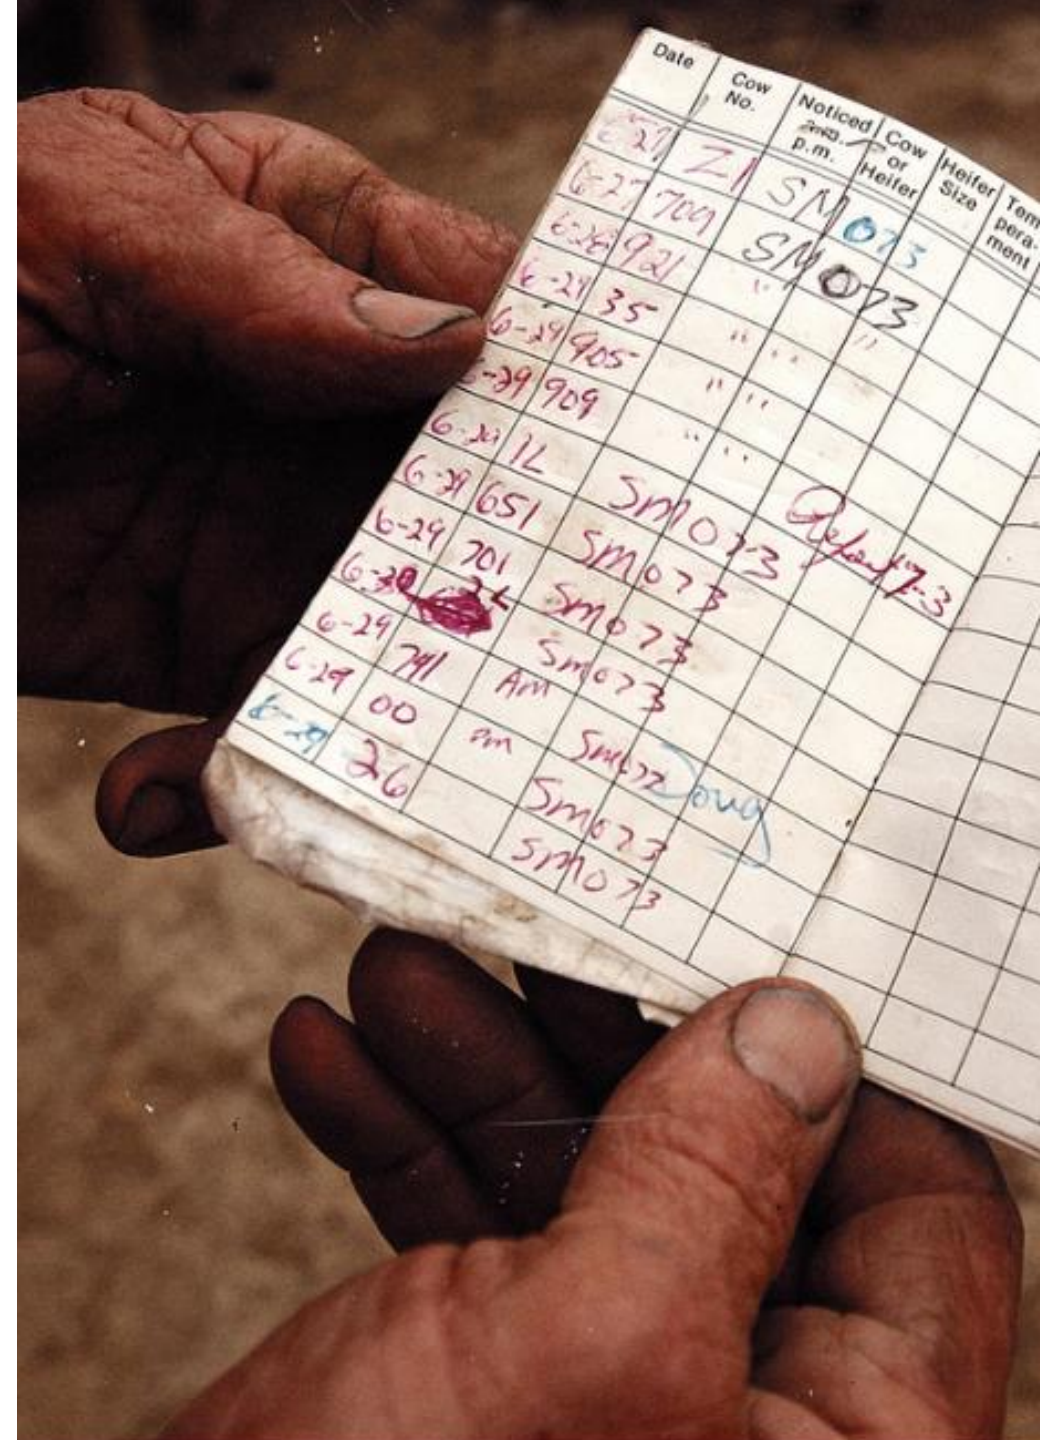 Date Cow No. Noticed p.m. Cow or Heifer Heifer Size Tem pera- ment
6-27 Z1 SM073
6-27 709 SM073
6-28 921 " "
35 " "
905 " "
909 " "
1L SM073 7-3
651 SM073
6-29 701 SM073
SM073
6-29 741 Am
6-29 00 pm Doug
6-29 26 SM073
SM073